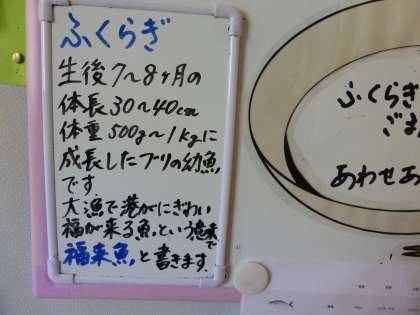 ふくらぎ
生後7〜8ヶ月の
体長30〜40cm
体重500g〜1kgに
成長したブリの幼魚
です.
大漁で港がにぎわい
福が来る魚,という意味で
福来魚,と書きます.
ふくらぎ
ごま
あわせあ